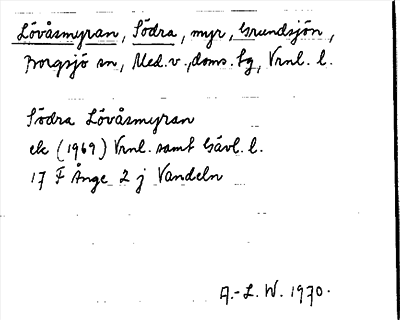 Lövåsmyran, Södra, myr, Grundsjön,
Borgsjö sn, Med. v., doms. sg, Vrnl. l.
Södra Lövåsmyran
ek (1969) Vrnl. samt Gävl. l.
17 F Ånge 2 j Vandeln
A.-L. W. 1970.